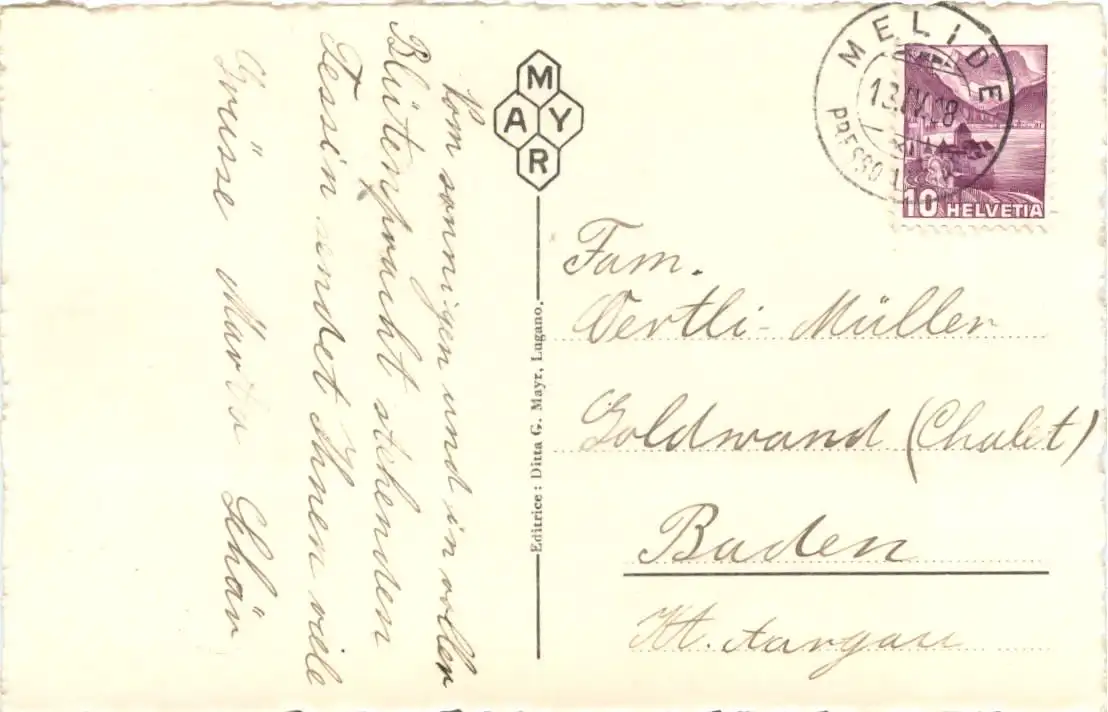 Vom sonnigen und in voller
Blütenpracht stehenden
Tessin sendet Ihnen viele
Grüsse Marta Schär
MAYR
Editrice: Ditta G. Mayr, Lugano.
MELIDE
13.IV.38
PRESSO L
10 HELVETIA
Fam.
Oertli-Müller
Goldwand (Chalet)
Baden
Kt. Aargau